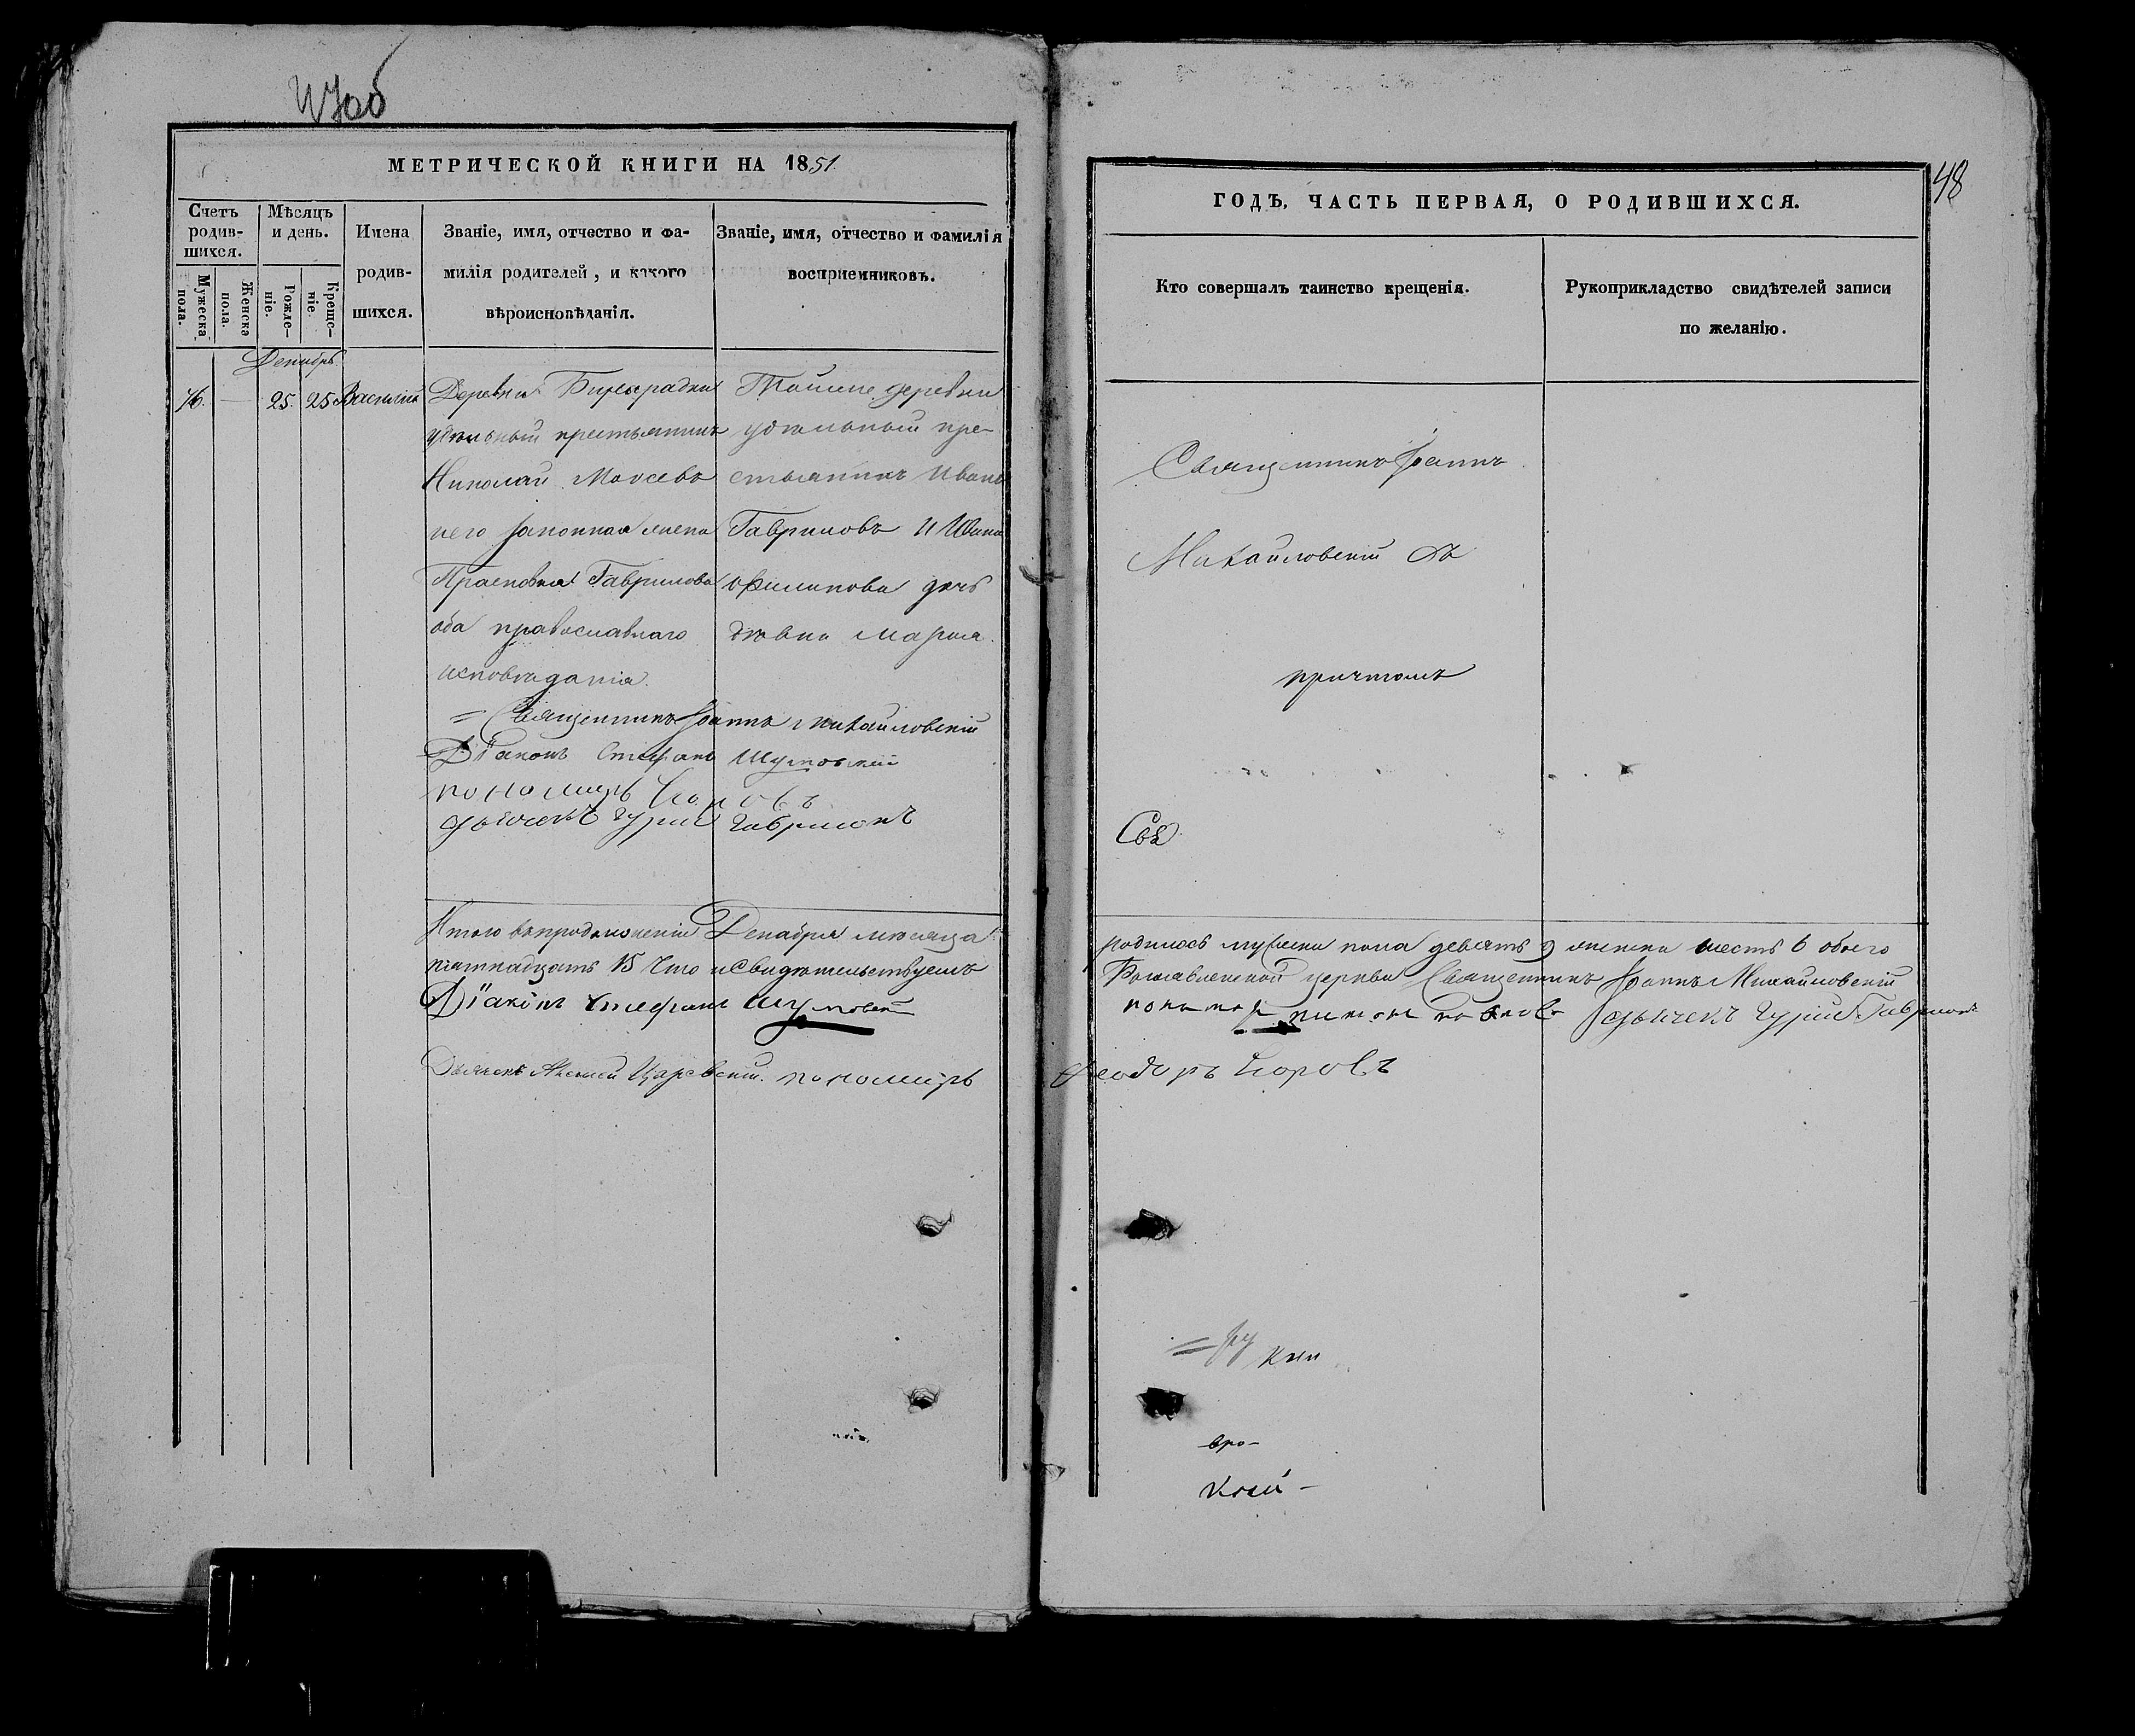 МЕТРИЧЕСКОЙ КНИГИ НА 1851.
Счетъ родившихся.
Мужеска пола.
Женска пола.
Мѣсяцъ и день.
Рожденіе.
Крещеніе.
Имена родившихся.
Званіе, имя, отчество и фамилія родителей, и какого вѣроисповѣданія.
Званіе, имя, отчество и фамилія воспріемниковъ.
Декабрь.
76. — 25. 25 Василій
Деревни
удѣльный крестьянинъ
Николай Моѵсевъ
него законная жена
Прасковья Гаврилова
оба православнаго
исповѣданія.
Тойже деревни
удѣльный кре-
стьянинъ Иванъ
Гавриловъ и Ивана
Филипова дочь
дѣвка Марія.
= Священникъ Іоаннъ Михайловскій
Діаконъ Стефанъ Шумовскій
пономарь
дьячекъ Гурій Гавриловъ
Итого въ продолженіи Декабря мѣсяца
пятнадцать 15 Что и свидѣтельствуемъ
Діаконъ Стефанъ Шумовскій
Дьячекъ Алексей Царевскій. пономарь
48
ГОДЪ, ЧАСТЬ ПЕРВАЯ, О РОДИВШИХСЯ.
Кто совершалъ таинство крещенія.
Рукоприкладство свидѣтелей записи по желанію.
Священникъ Іоаннъ
Михайловскій съ
причтомъ
Свя
родилось мужеска пола девять 9 женска шесть 6 обоего
церкви Священникъ Іоаннъ Михайловскій
пономарь дьячекъ Гурій Гавриловъ
Феодоръ
кни
вро-